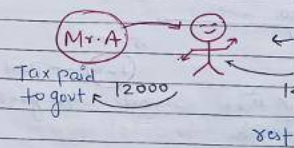 Mr. A
Tax paid
to govt
12000
1
rest